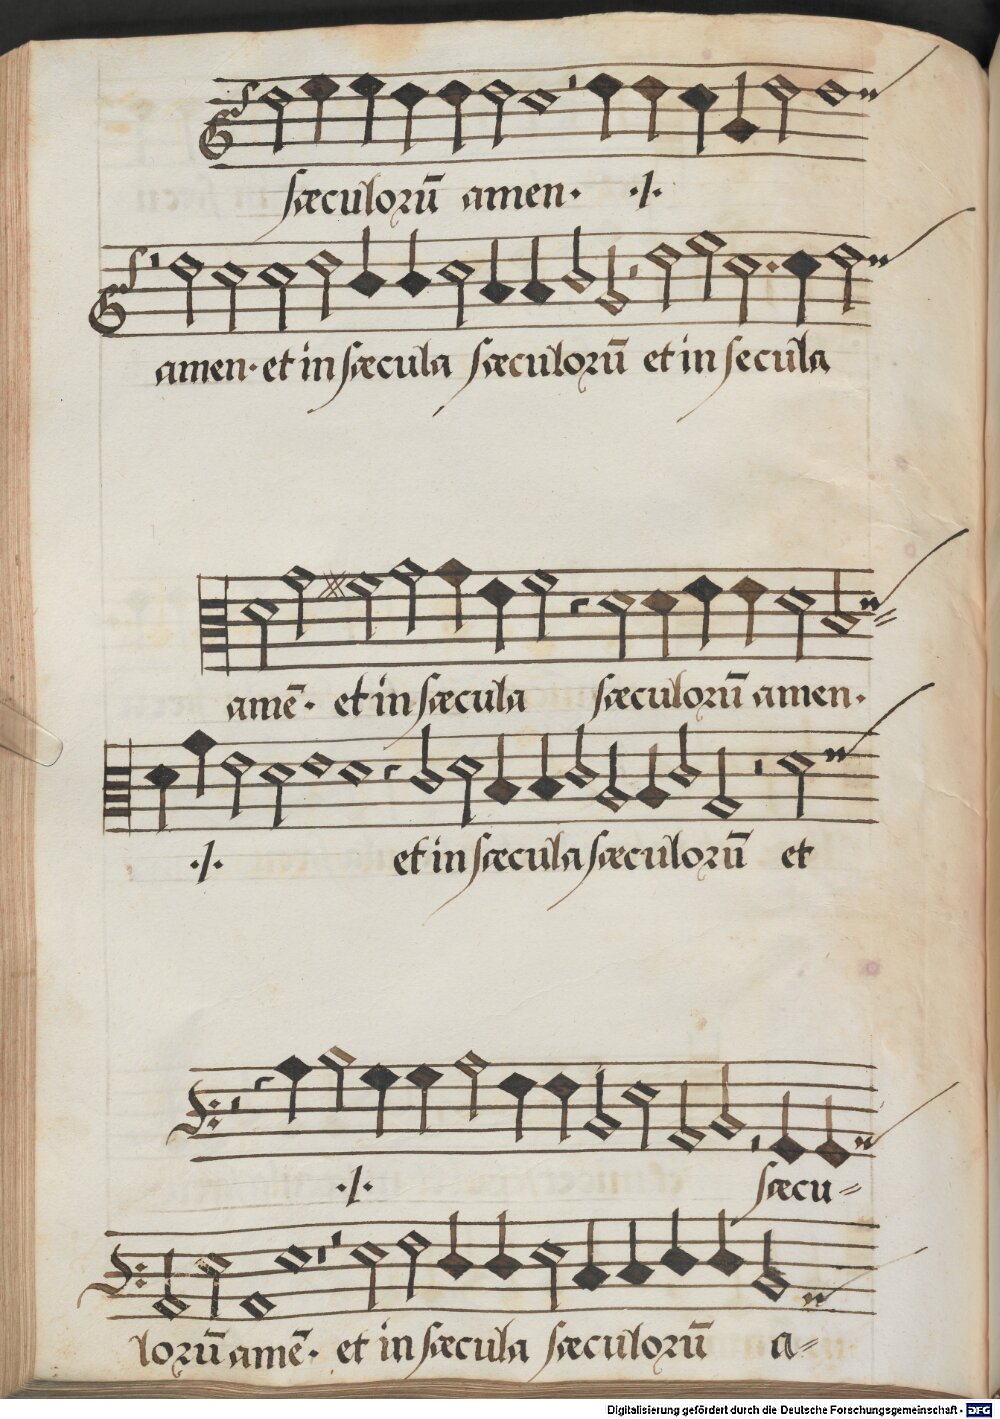 sæculorū amen· ·/·
amen· et in sæcula sæculorū et in secula
amē· et in sæcula sæculorū amen·
·/· et in sæcula sæculorū et
·/· sæcu=
lorū amē· et in sæcula sæculorū a=
Digitalisierung gefördert durch die Deutsche Forschungsgemeinschaft - DFG